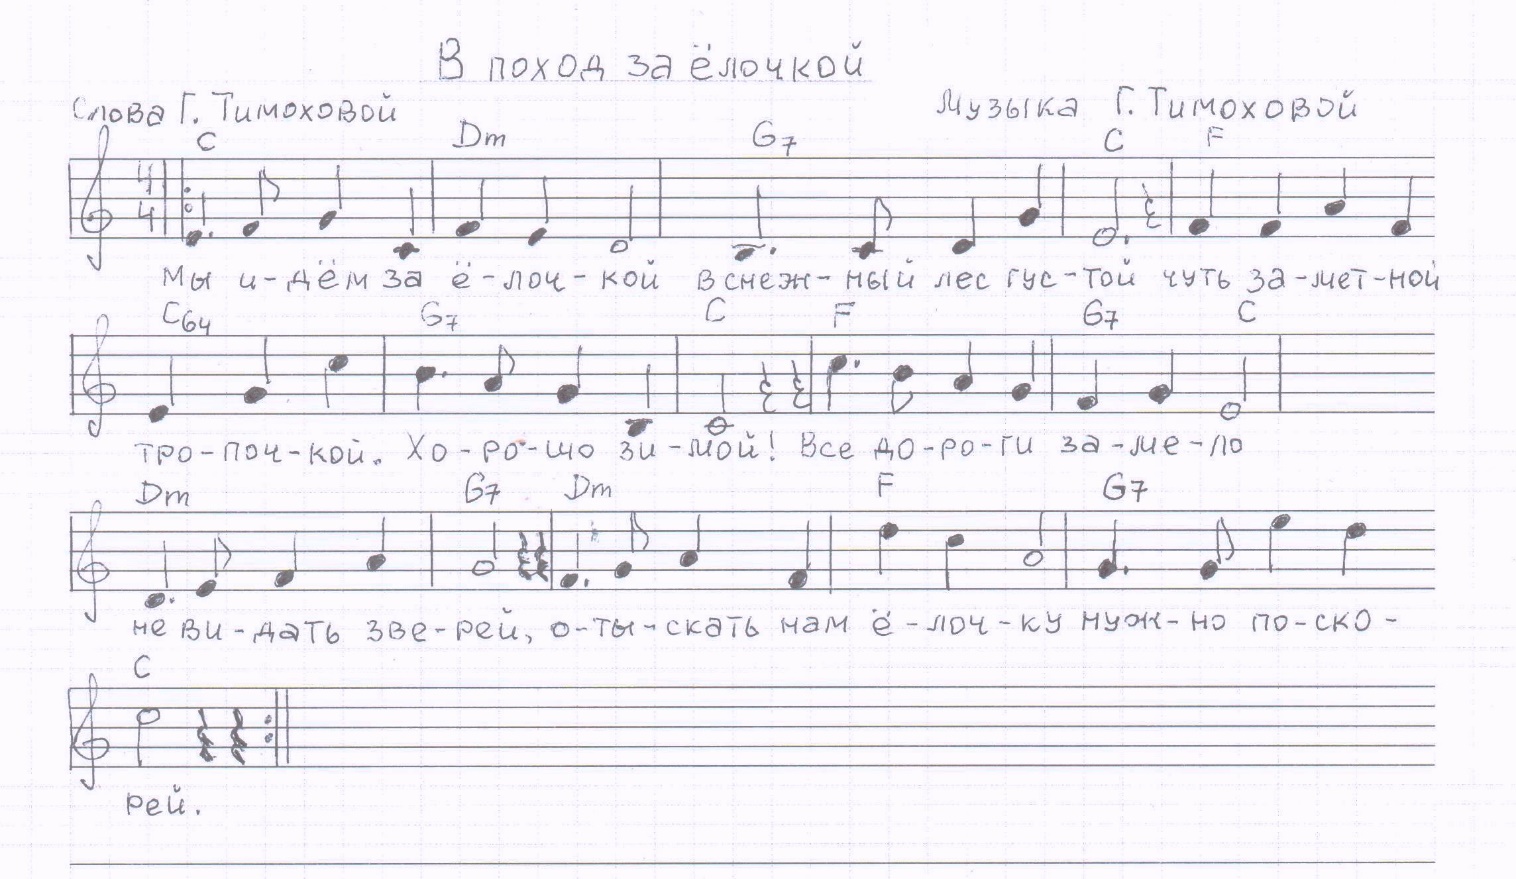 В поход за ёлочкой
Слова Г. Тимоховой Музыка Г. Тимоховой
C Dm G7 C F
4
4
мы и-дём за ё-лоч-кой в снеж-ный лес гус-той чуть за-мет-ной
C64 G7 C F G7 C
тро-поч-кой. Хо-ро-шо зи-мой! Все до-ро-ги за-ме-ло
Dm G7 Dm F G7
не ви-дать зве-рей, о-ты-скать нам ё-лоч-ку нуж-но по-ско-
C
рей.